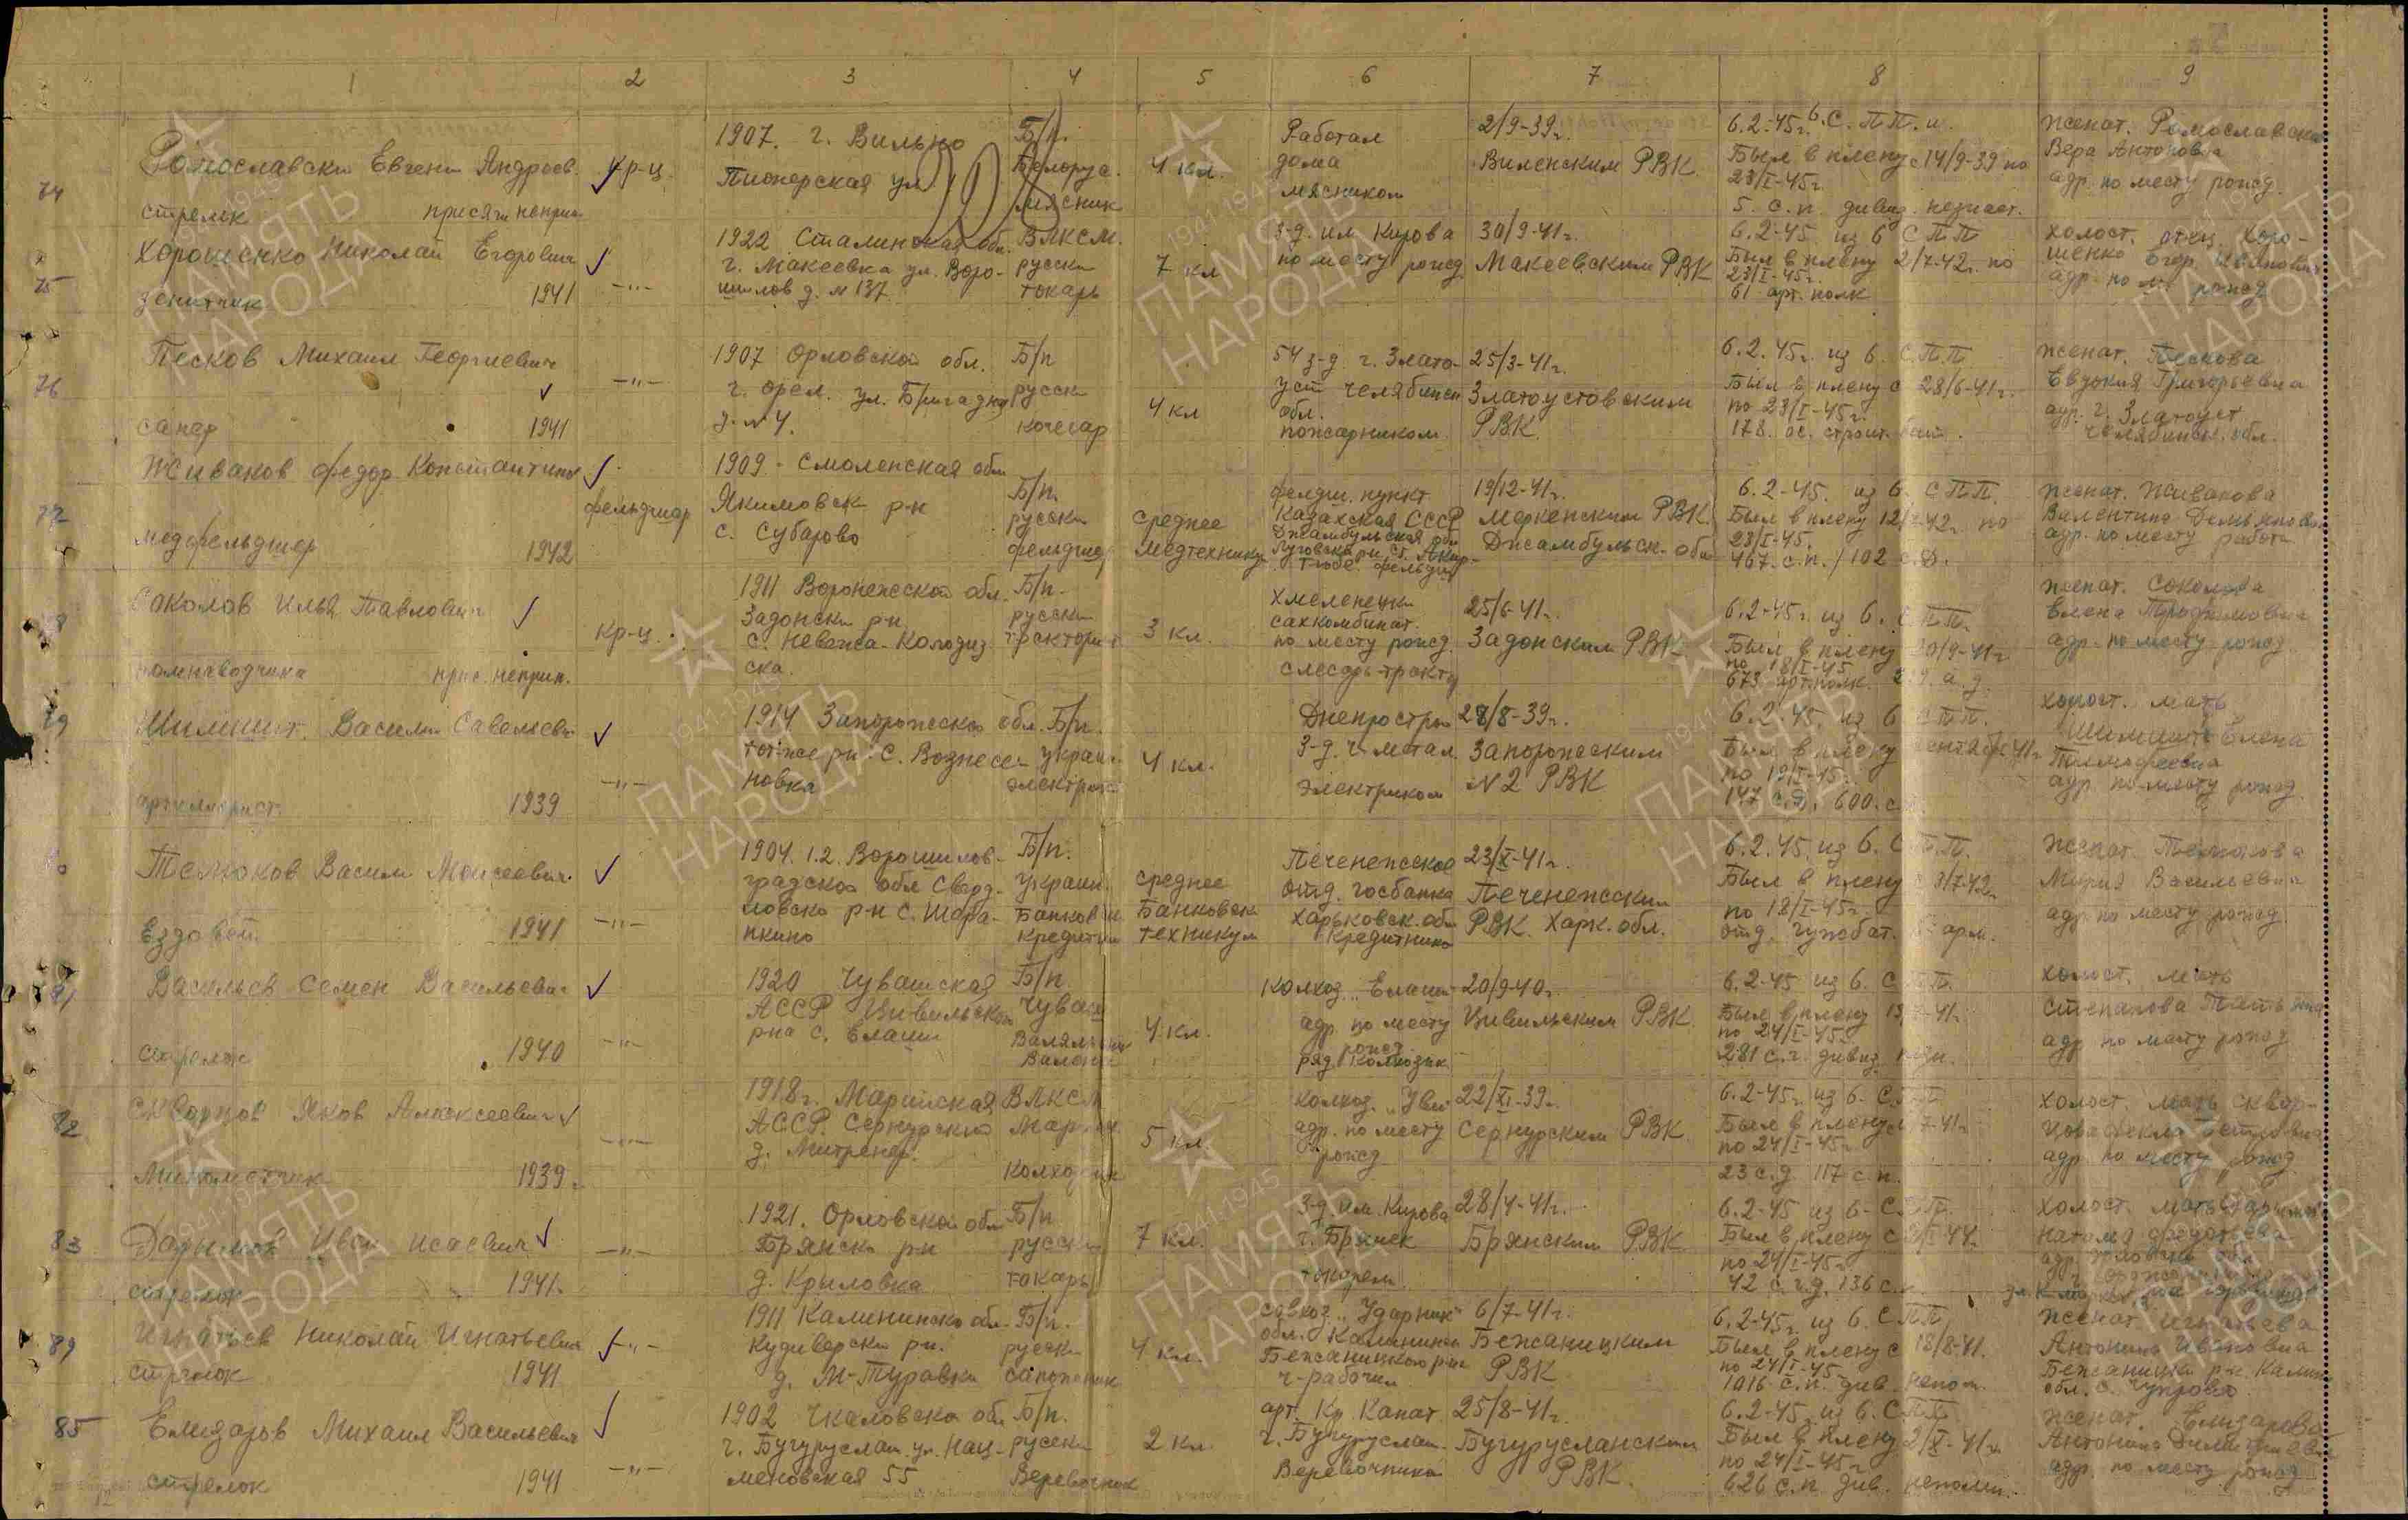 1 2 3 4 5 6 7 8 9
74
Евгени Андреев.
стрелок присяги неприн.
кр-ц.
1907. г. Вильно
Пионерская ул.
Б/п.
Белорус.
мясник
4 кл.
Работал
дома
мясником
2/9-39г.
Виленским РВК
6.2-45г. С.П.П.
Был в плену с 14/9-39 по
23/I-45г.
5. с.п. дивиз. незнает.
женат.
Вера Антоновна
адр. по месту рожд.
75
Хорошенко Николай Егорович
зенитчик 1941
-"-
1922 Сталинская обл.
г. Макеевка ул. Воро-
шилов д. № 137
ВЛКСМ.
русски
токарь
7 кл
з-д. им Кирова
по месту рожд.
30/9-41г.
Макеевским РВК
6.2-45 из 6 СПП
Был в плену 2/7-42г. по
23/I-45г.
61 арт. полк
холост. отец Хоро-
шенко Егор Иванович
адр. по м. рожд
76
Песков Михаил Георгиевич
сапер 1941
-"-
1907 Орловской обл.
г. Орел. ул. Бригадная
д. № 4.
Б/п
русски
кочегар
4 кл
54 з-д. г. Злато-
уст Челябинск
обл.
пожарником
25/3-41г.
Златоустовским
РВК
6.2.45г. из 6. С.П.П
Был в плену с 28/6-41г.
по 23/I-45г.
178. ос. строит. бат.
женат. Пескова
Евдокия Григорьевна
адр. г. Златоуст
Челябинск. обл.
77
Живаков Федор Константинов
медфельдшер 1942
фельдшер
1909 - Смоленская обл
Якимовск р-н
с. Субарово
Б/п.
русски
фельдшер
среднее
медтехникум
фелдш. пункт
Казахская ССР
Джамбульская обл
19/12-41г.
Меркенским РВК.
Джамбульск. обл
6.2-45. из 6. СПП.
Был в плену
23/I-45.
467. с.п. / 102 с.д.
женат. Живакова
Валентина Демьяновна
адр. по месту работы
Соколов Илья Павлович
помнаводчика прис. неприн.
кр-ц.
1911 Воронежской обл.
Задонски р-н
с. Невежа-Колодез-
ска.
Б/п.
русски
тракторист
3 кл.
Хмеленецки
сахкомбинат.
по месту рожд.
слесарь-тракт
25/6-41г.
Задонским РВК
6.2-45г. из 6. С.П.П.
Был в плену 20/9-41г
по 18/I-45
673 арт. полк.
женат. Соколова
Елена Трофимовна
адр. по месту рожд
79
Шимшит Василий Савельевич
артиллерист. 1939
-"-
1914 Запорожской обл.
тот-же р-н. с. Вознесен-
новка
Б/п.
украин.
электрик
4 кл.
Днепрострой
з-д. ч. метал.
электриком
28/8-39г.
Запорожским
№2 РВК
6.2-45. из 6 СПП.
Был в плену сентябрь 41г
по 19/I-45г.
147 с.д. 600. с.
холост. мать
Шимшит Елена
Тимофеевна
адр. по месту рожд.
Телюков Васили Моисеевич
Ездовой 1941
-"-
1904. 1.2. Ворошилов-
градской обл Сверд-
ловско р-н с. Шара-
пкино
Б/п.
украин.
Банков
кредитни
среднее
Банковск
техникум
Печенежское
отд. госбанка
Харьковск. обл
кредитника
23/X-41г.
Печенежски
РВК Харк. обл.
6.2.45. из 6. С.П.П.
Был в плену с 9/7-42г
по 18/I-45г
отд. гужбат. арм.
женат Телюкова
Мария Васильевна
адр. по месту рожд.
81
Васильев Семен Васильевич
стрелок 1940
-"-
1920 Чувашская
АССР Цивильском
р-на с. Елаши
Б/п.
Чуваш
4 кл.
Колхоз "Елаши"
адр. по месту
рожд.
ряд. колхозник
20/9-40г.
Цивильским РВК
6.2-45 из 6. С.П.П.
Был в плену
по 24/I-45г
281 с.п. дивиз.
холост. мать
Степанова Татьяна
адр по месту рожд
82
Скворцов Яков Алексеевич
минометчик 1939.
-"-
1918г. Марийская
АССР. Сернурский
д. Митренер.
ВЛКСМ
колхозник
5 кл.
колхоз
адр. по месту
рожд
22/XI-39г.
Сернурским РВК
6.2-45г. из 6. С.П.П
Был в плену с 7-41г
по 24/I-45г
23 с.д 117 с.п.
холост. мать Сквор-
цова Фекла Петровна
адр. по месту рожд
83
Иван Исаевич
стрелок 1941.
-"-
1921. Орловской обл
Брянски р-н
д. Крыловка
Б/п
русски
токарь
7 кл.
З-д. им. Кирова
г. Брянск
токарем
28/4-41г.
Брянским РВК
6.2-45 из 6- С.П.П.
Был в плену с
по 24/I-45г
42 с.д. 136 с.
холост. мать
адр.
89
Игнатьев Николай Игнатьевич
стрелок 1941
-"-
1911 Калининско обл.
Кудеверски р-н.
д. М-Туравки
Б/п.
русски
сапожник
4 кл.
совхоз "Ударник"
обл. Калинин
Бежаницкого р-н
ч-рабочим
6/7-41г.
Бежаницким
РВК
6.2-45г из 6. С.П.П
Был в плену с 18/8-41.
по 24/I-45
1016 с.п. див. непом.
женат. Игнатьева
Антонина Ивановна
Бежаницки р-н Калин
обл. с. Чупрово
85
Елизаров Михаил Васильевич
стрелок 1941
-"-
1902 Чкаловско обл
г. Бугуруслан ул. Нац-
меновская 55
Б/п.
русски
Веревочник
2 кл.
арт. Кр. Канат.
г. Бугуруслан
Веревочника
25/8-41г.
Бугурусланским
РВК.
6.2-45 из 6. С.П.П
Был в плену 2/X-41г.
по 24/I-45г
626 с.п. див. непомн.
женат. Елизарова
Антонина Дмитриевна
адр. по месту рожд
1941-1945
ПАМЯТЬ
НАРОДА